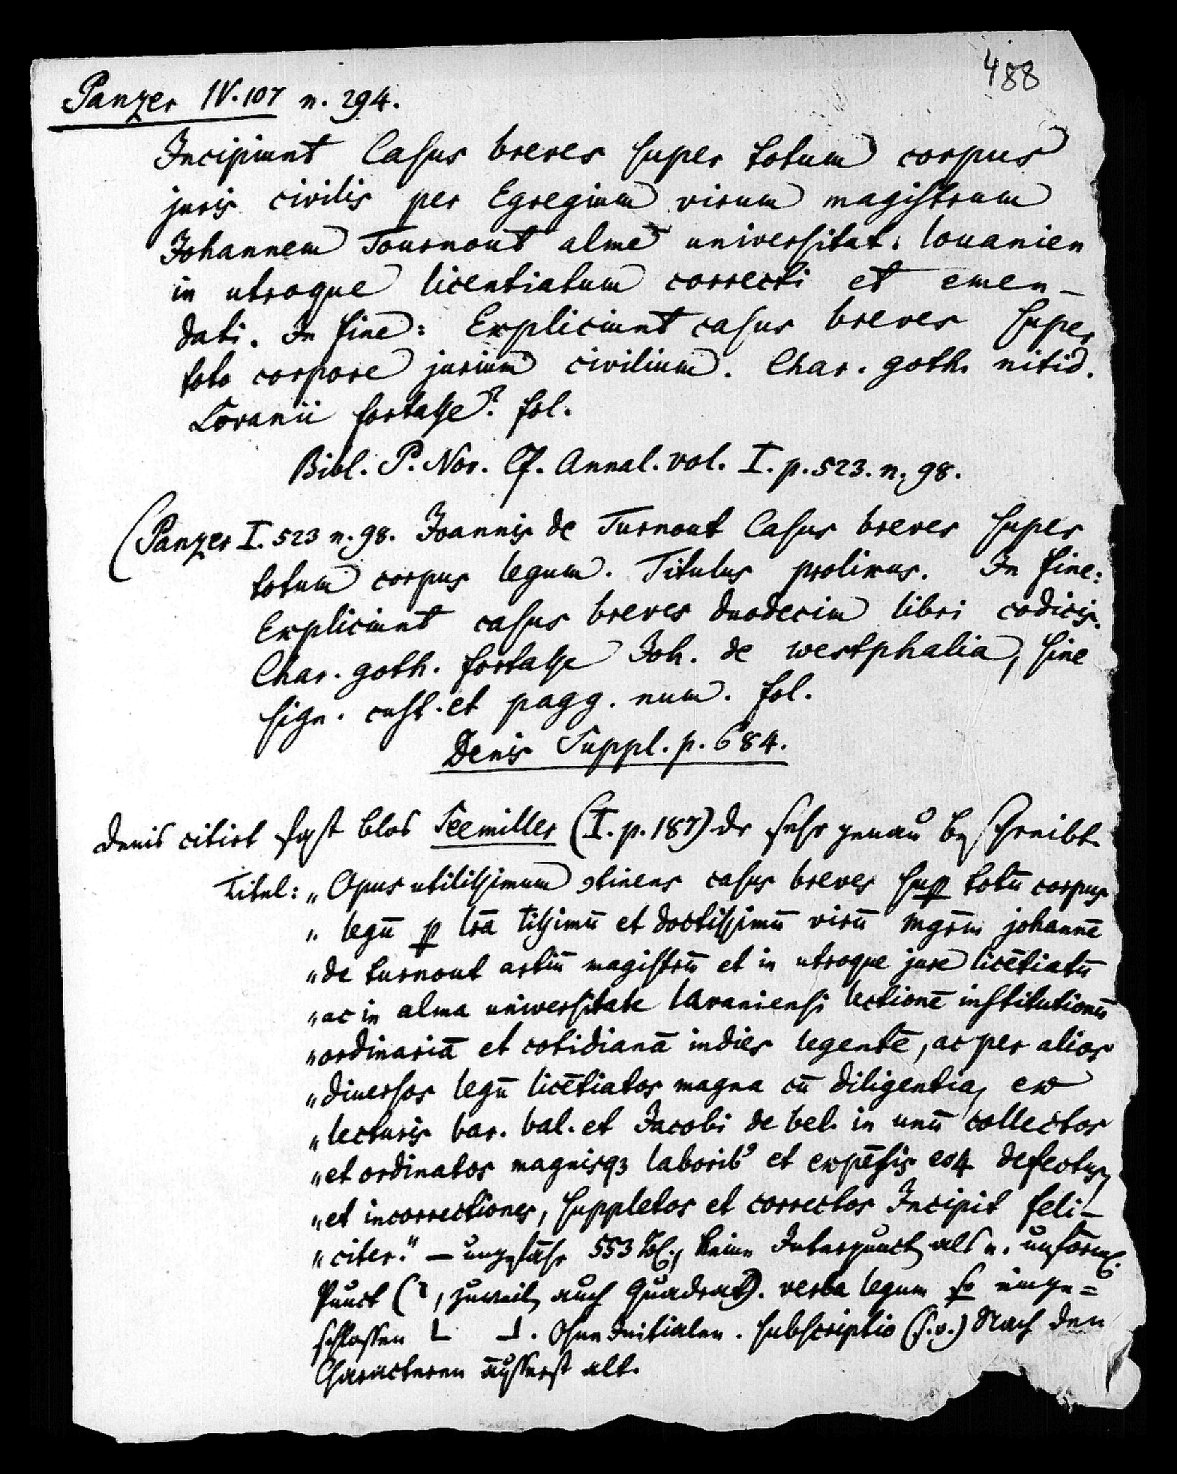 488
Panzer IV. 107 n. 294.
Incipiunt Casus breves super totum corpus
juris civilis per Egregium virum magistrum
Johannem Tournout alme universitat. louanien
in utroque licentiatum correcti et emen-
dati. In fine: Expliciunt casus breves super
toto corpore jurium civilium. Char. goth. nitid.
Lovanii fortasse? fol.
Bibl. P. Nor. Cf. Annal. vol. I. p. 523. n. 98.
(Panzer I. 523 n. 98. Joannis de Turnout Casus breves super
totum corpus legum. Titulus prolixus. In fine:
Expliciunt casus breves duodecim libri codicis.
Char. goth. fortasse Joh. de westphalia, sine
sign. cust. et pagg. num. fol.
Denis Suppl. p. 684.
Denis citirt fast blos Seemiller (I. p. 187) der sehr genau beschreibt.
Titel: „Opus utilissimum ꝯtinens casus breves suꝑ totū corpus
„legū ꝑ lrā tissimū et doctissimū virū mgrm̄ johannē
„de turnout artiū magistrū et in utroque jure licētiatū
„ac in alma universitate lovaniensi lectionē institutionū
„ordinariā et cotidianā indies legentē, ac per alios
„diuersos legū licētiatos magna cū diligentia, ex
„lecturis bar. bal. et Jacobi de bel. in unū collectos
„et ordinatos magnisqꝫ laboribꝰ et expēsis eoꝝ defectus,
„et incorrectiones, suppletos et correctos Incipit feli-
„citer." — ungefähr 553 Bl., keine Interpunct. als u. unförml.
Punct (, zuweil. auch Quadrat). verba legum so einge=
schlossen ⌊ ⌋. Ohne Initialen. subscriptio (s. o.) Nach den
Characteren äusserst alt.